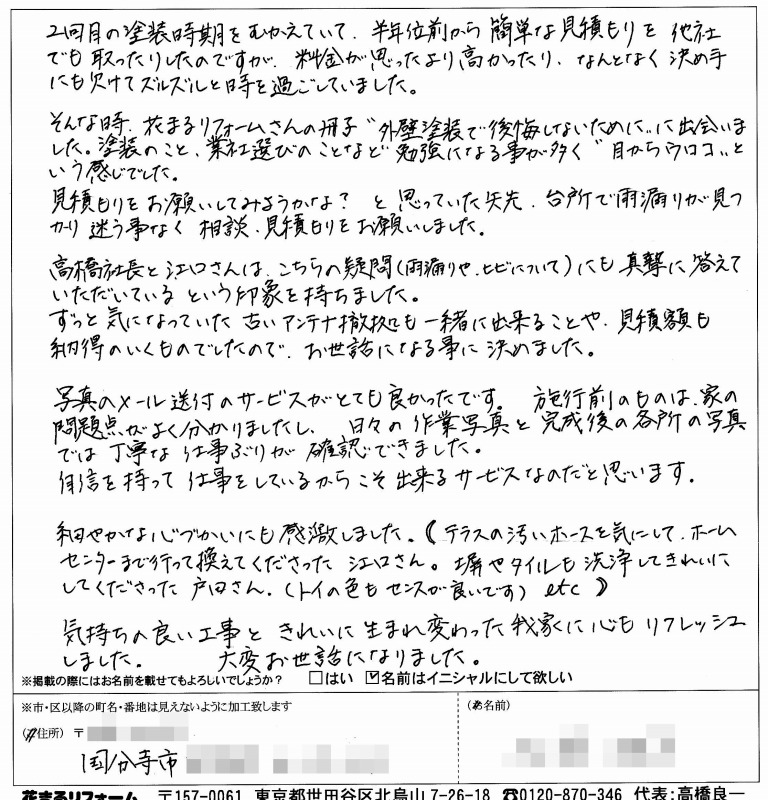 2回目の塗装時期をむかえていて、半年位前から簡単な見積もりを他社
でも取ったりしたのですが、料金が思ったより高かったり、なんとなく決め手
にも欠けてズルズルと時を過ごしていました。
そんな時、花まるリフォームさんの冊子"外壁塗装で後悔しないために"に出会いま
した。塗装のこと、業社選びのことなど勉強になる事が多く"目からウロコ"と
いう感じでした。
見積もりをお願いしてみようかな？と思っていた矢先、台所で雨漏りが見つ
かり迷う事なく相談、見積もりをお願いしました。
高橋社長と江口さんは、こちらの疑問(雨漏りや、ヒビについて)にも真摯に答えて
いただいているという印象を持ちました。
ずっと気になっていた古いアンテナ撤拠も一緒に出来ることや、見積額も
納得のいくものでしたので、お世話になる事に決めました。
写真のメール送付のサービスがとても良かったです。施行前のものは、家の
問題点がよく分かりましたし、日々の作業写真と完成後の各所の写真
では丁寧な仕事ぶりが確認できました。
自信を持って仕事をしているからこそ出来るサービスなのだと思います。
細やかな心づかいにも感激しました。《テラスの汚いホースを気にして、ホーム
センターまで行って換えてくださった江口さん。塀やタイルも洗浄してきれいに
してくださった戸田さん。(トイの色もセンスが良いです) etc 》
気持ちの良い工事ときれいに生まれ変わった我家に心もリフレッシュ
しました。 大変お世話になりました。
※掲載の際にはお名前を載せてもよろしいでしょうか？ □はい ☑名前はイニシャルにして欲しい
※市・区以降の町名・番地は見えないように加工致します
(ご住所) 〒
国分寺市
(お名前)
花まるリフォーム 〒157-0061 東京都世田谷区北烏山7-26-18 ☎0120-870-346 代表:高橋良一